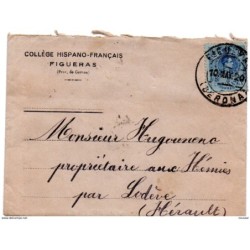 COLLÈGE HISPANO-FRANÇAIS
FIGUERAS
(Prov. de Gerona)
(GERONA)
Monsieur Hugounenq
propriétaire aux Hémies
par Lodève
(Hérault)